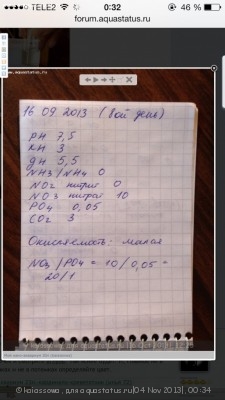 TELE2
0:32
46 %
forum.aquastatus.ru
www.aquastatus.ru
16 09 2013 (8ой день)
PH 7,5
KH 3
дН 5,5
NH3/NH4 0
NO2 нитрит 0
NO3 нитрат 10
PO4 0,05
CO2 3
Окисляемость: малая
NO3/PO4 = 10/0,05 =
20/1
© kalassowa , для aquastatus.ru|04 Nov 2013|, 00:34